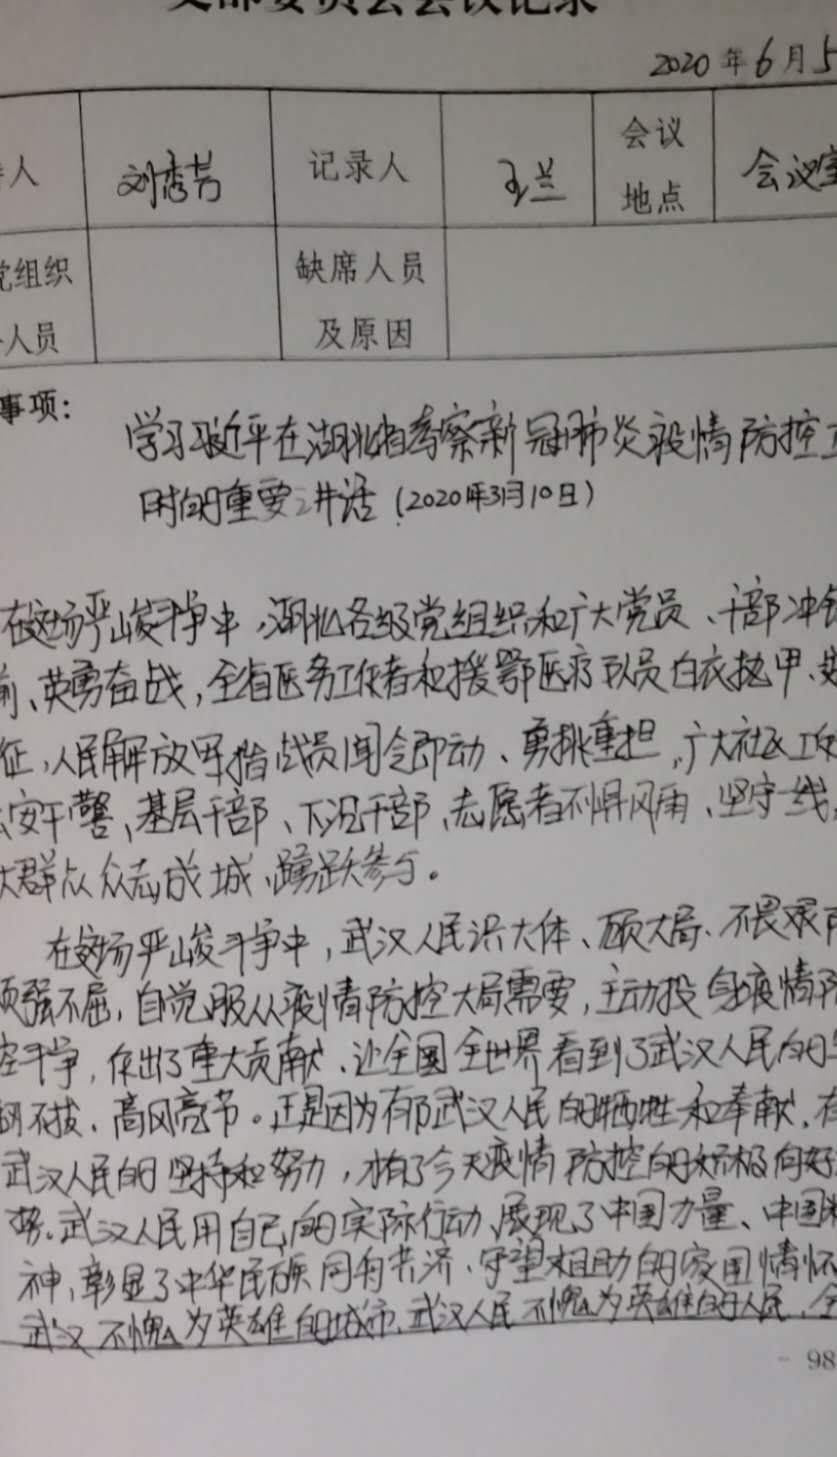 支部委员会会议记录
2020年6月5
持人 刘秀芳 记录人 王兰 会议地点 会议室
党组织
人员
缺席人员及原因
事项:
学习习近平在湖北省考察新冠肺炎疫情防控工
时的重要讲话(2020年3月10日)
在这场严峻斗争中,湖北各级党组织和广大党员、干部冲锋
前、英勇奋战,全省医务工作者和援鄂医疗队员白衣执甲、逆
征,人民解放军指战员闻令即动、勇挑重担,广大社区工作
公安干警、基层干部、下沉干部、志愿者不惧风雨、坚守一线,
大群众众志成城、踊跃参与。
在这场严峻斗争中,武汉人民识大体、顾大局、不畏艰险
顽强不屈,自觉服从疫情防控大局需要,主动投身疫情防
控斗争,作出了重大贡献,让全国全世界看到了武汉人民的坚
韧不拔、高风亮节。正是因为有武汉人民的牺牲和奉献,有
武汉人民的坚持和努力,才有了今天疫情防控的积极向好
势。武汉人民用自己的实际行动,展现了中国力量、中国精
神,彰显了中华民族同舟共济、守望相助的家国情怀
武汉不愧为英雄的城市,武汉人民不愧为英雄的人民,全
- 98